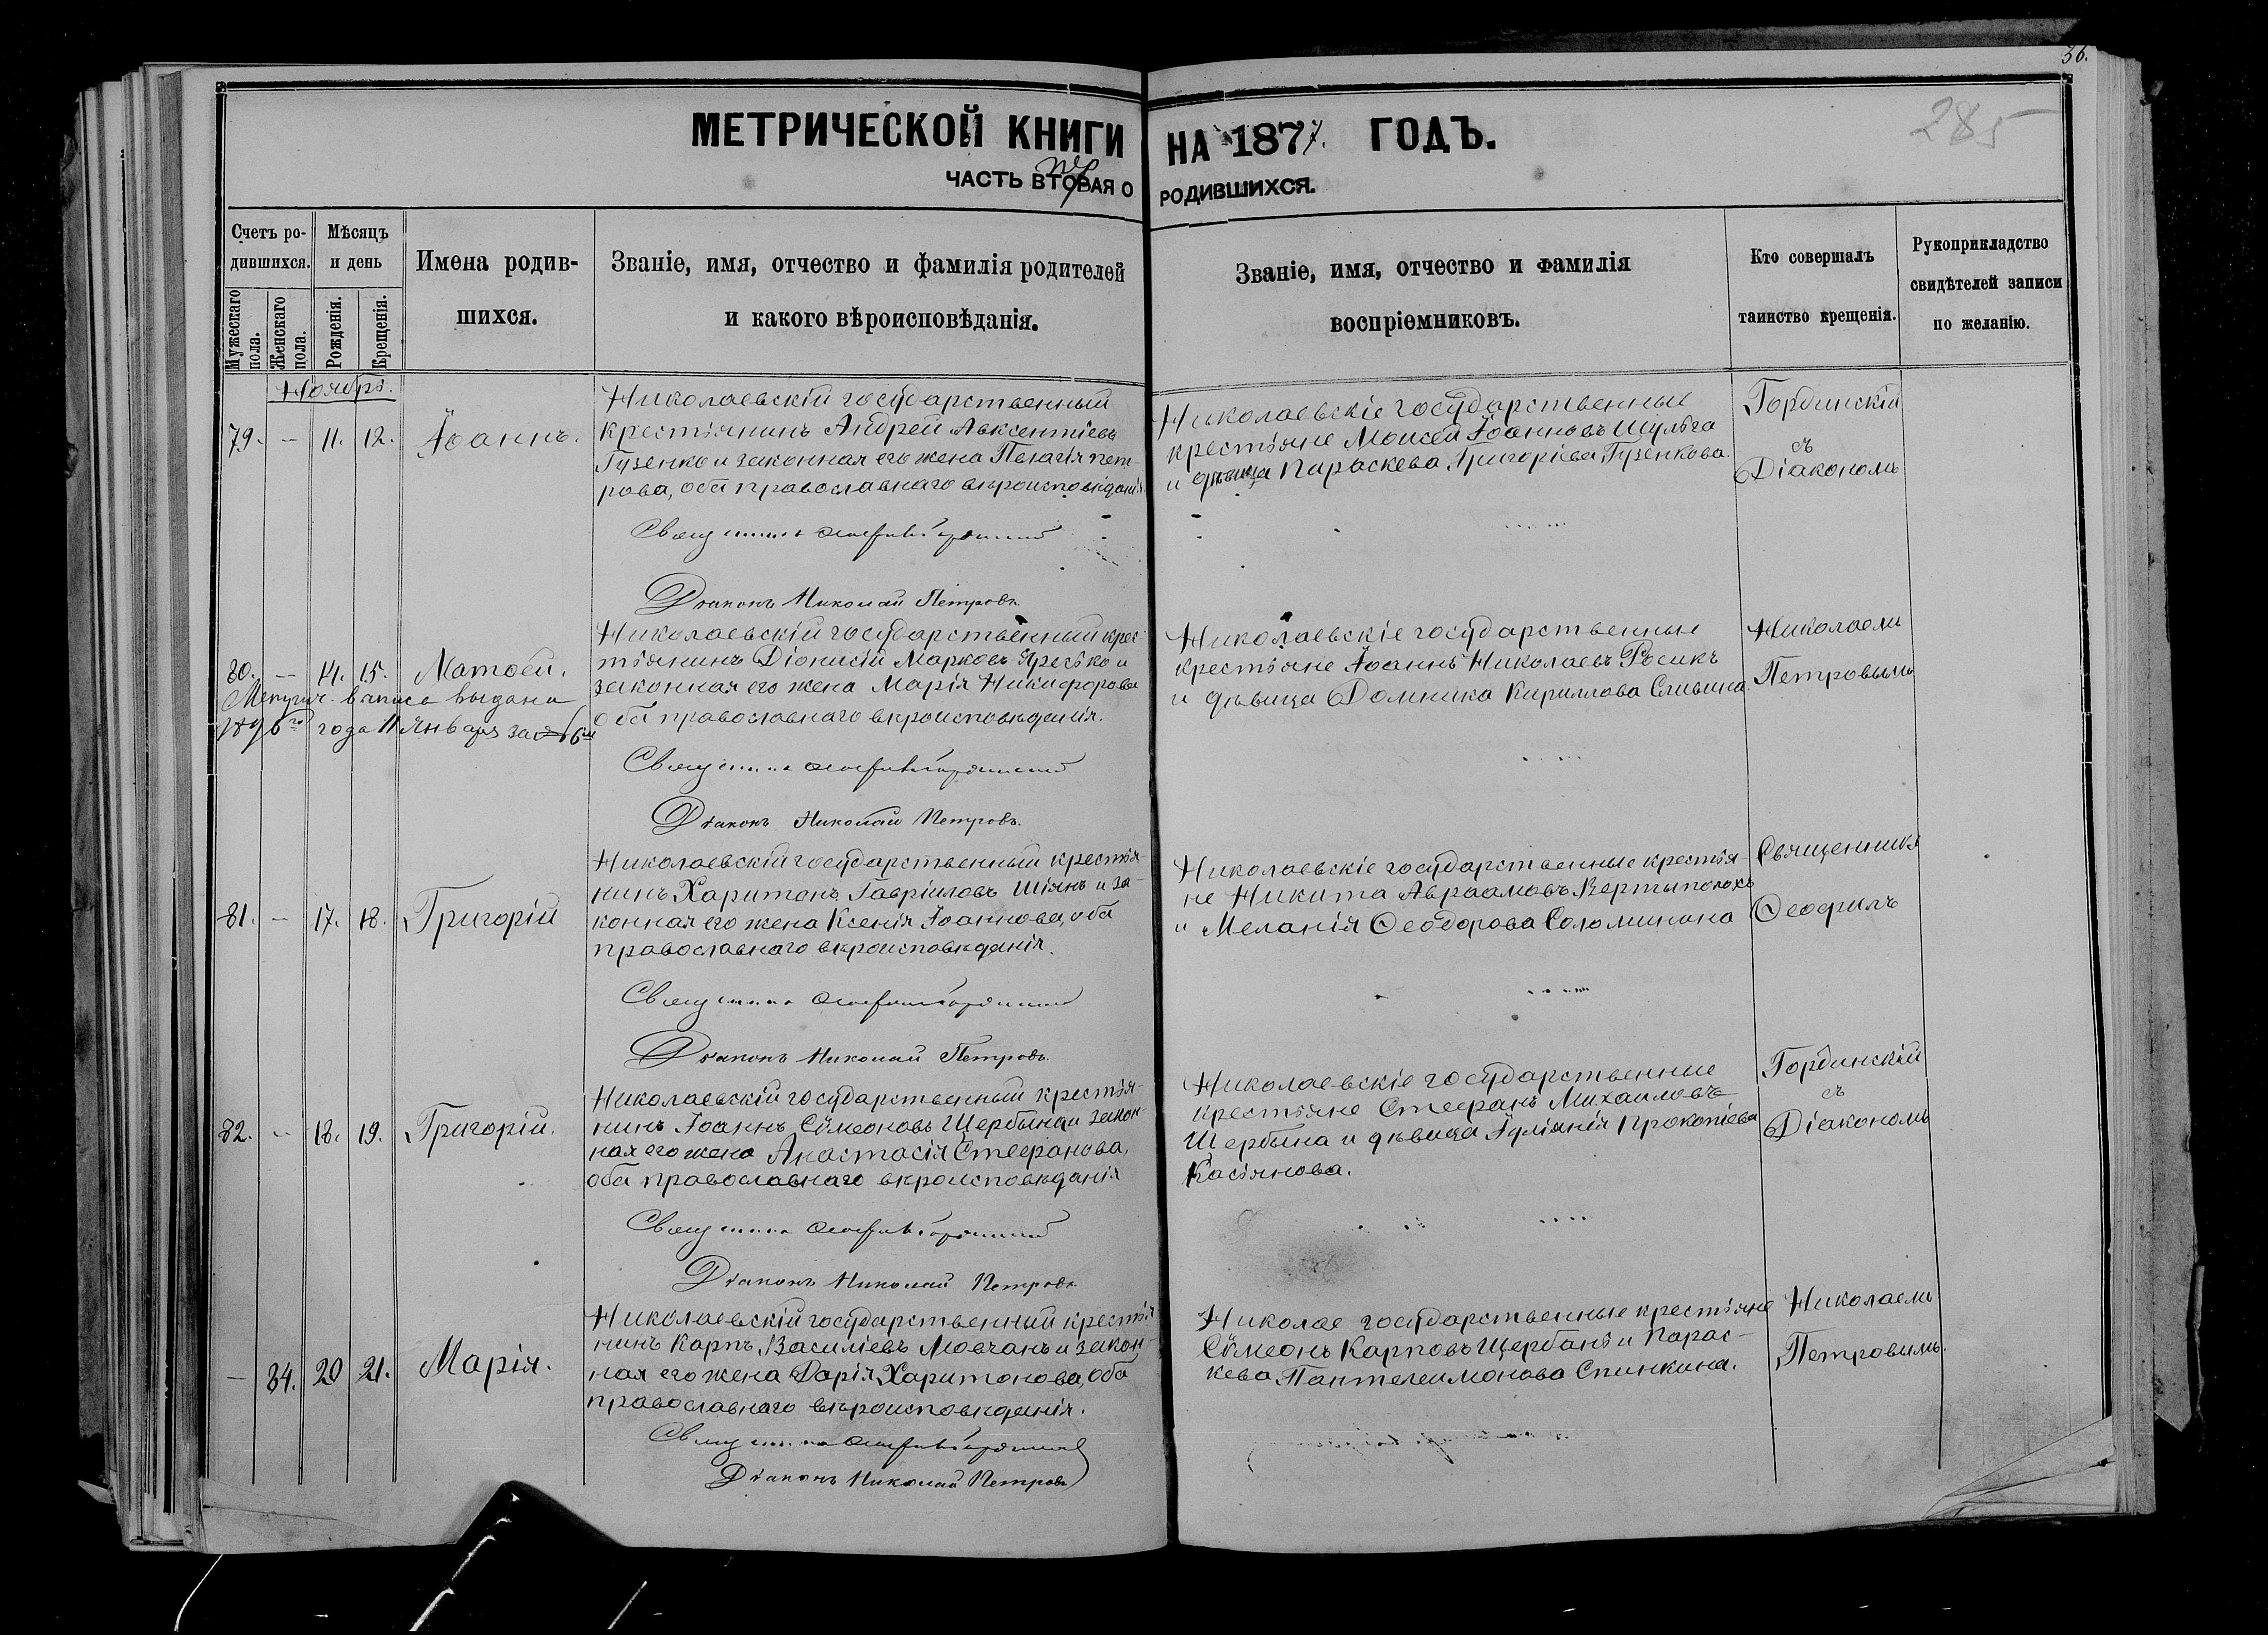 36.
285
МЕТРИЧЕСКОЙ КНИГИ НА 1877. ГОДЪ.
ЧАСТЬ ВТОРАЯ О РОДИВШИХСЯ.
Счетъ родившихся.
Мужескаго пола.
Женскаго пола.
Мѣсяцъ и день
Рожденія.
Крещенія.
Имена родив-
шихся.
Званіе, имя, отчество и фамилія родителей
и какого вѣроисповѣданія.
Званіе, имя, отчество и фамилія
воспріемниковъ.
Кто совершалъ
таинство крещенія.
Рукоприкладство
свидѣтелей записи
по желанію.
Ноябрь.
79. — 11. 12. Іоаннъ.
Николаевскій государственный
крестьянинъ Андрей Авксентіевъ
Гузенко и законная его жена Пелагія Пет-
рова, оба православнаго вѣроисповѣданія
Николаевскіе государственные
крестьяне Моисей Іоанновъ Шульга
и дѣвица Параскева Григоріева Гузенкова.
Гординскій
съ
Діакономъ
Священникъ
Діаконъ Николай Петровъ.
80. — 14. 15. Матѳей.
Метрич. выпись выдана
1896го года 11 Января за №
Николаевскій государственный крес-
тьянинъ Діонисій Марковъ Яресько и
законная его жена Марія Никифорова
оба православнаго вѣроисповѣданія.
Николаевскіе государственные
крестьяне Іоаннъ Николаевъ Росикъ
и дѣвица Домника Кириллова Сливина
Николаемъ
Петровымъ
Священникъ
Діаконъ Николай Петровъ.
81. — 17. 18. Григорій
Николаевскій государственный крестья-
нинъ Харитонъ Гавріиловъ Шіянъ и за-
конная его жена Ксенія Іоаннова, оба
православнаго вѣроисповѣданія.
Николаевскіе государственные крестья-
не Никита Авраамовъ Вертыпорохъ
и Меланія Ѳеодорова Соломинина
Священникъ
Ѳеофилъ
Священникъ
Діаконъ Николай Петровъ.
82. — 18. 19. Григорій.
Николаевскій государственный крестья-
нинъ Іоаннъ Сѵмеоновъ Щербина и закон-
ная его жена Анастасія Стефанова,
оба православнаго вѣроисповѣданія
Николаевскіе государственные
крестьяне Стефанъ Михаиловъ
Щербина и дѣвица Іуліянія Прокопіева
Касьянова.
Гординскій
съ
Діакономъ
Священникъ
Діаконъ Николай Петровъ.
— 84. 20 21. Марія.
Николаевскій государственный крестья
нинъ Карпъ Василіевъ Мовчанъ и закон-
ная его жена Дарія Харитонова, оба
православнаго вѣроисповѣданія.
Николае государственные крестьяне
Сѵмеонъ Карповъ Щербань и Парас-
кева Пантелеимонова Спинкина.
Николаемъ
Петровымъ.
Священникъ
Діаконъ Николай Петровъ